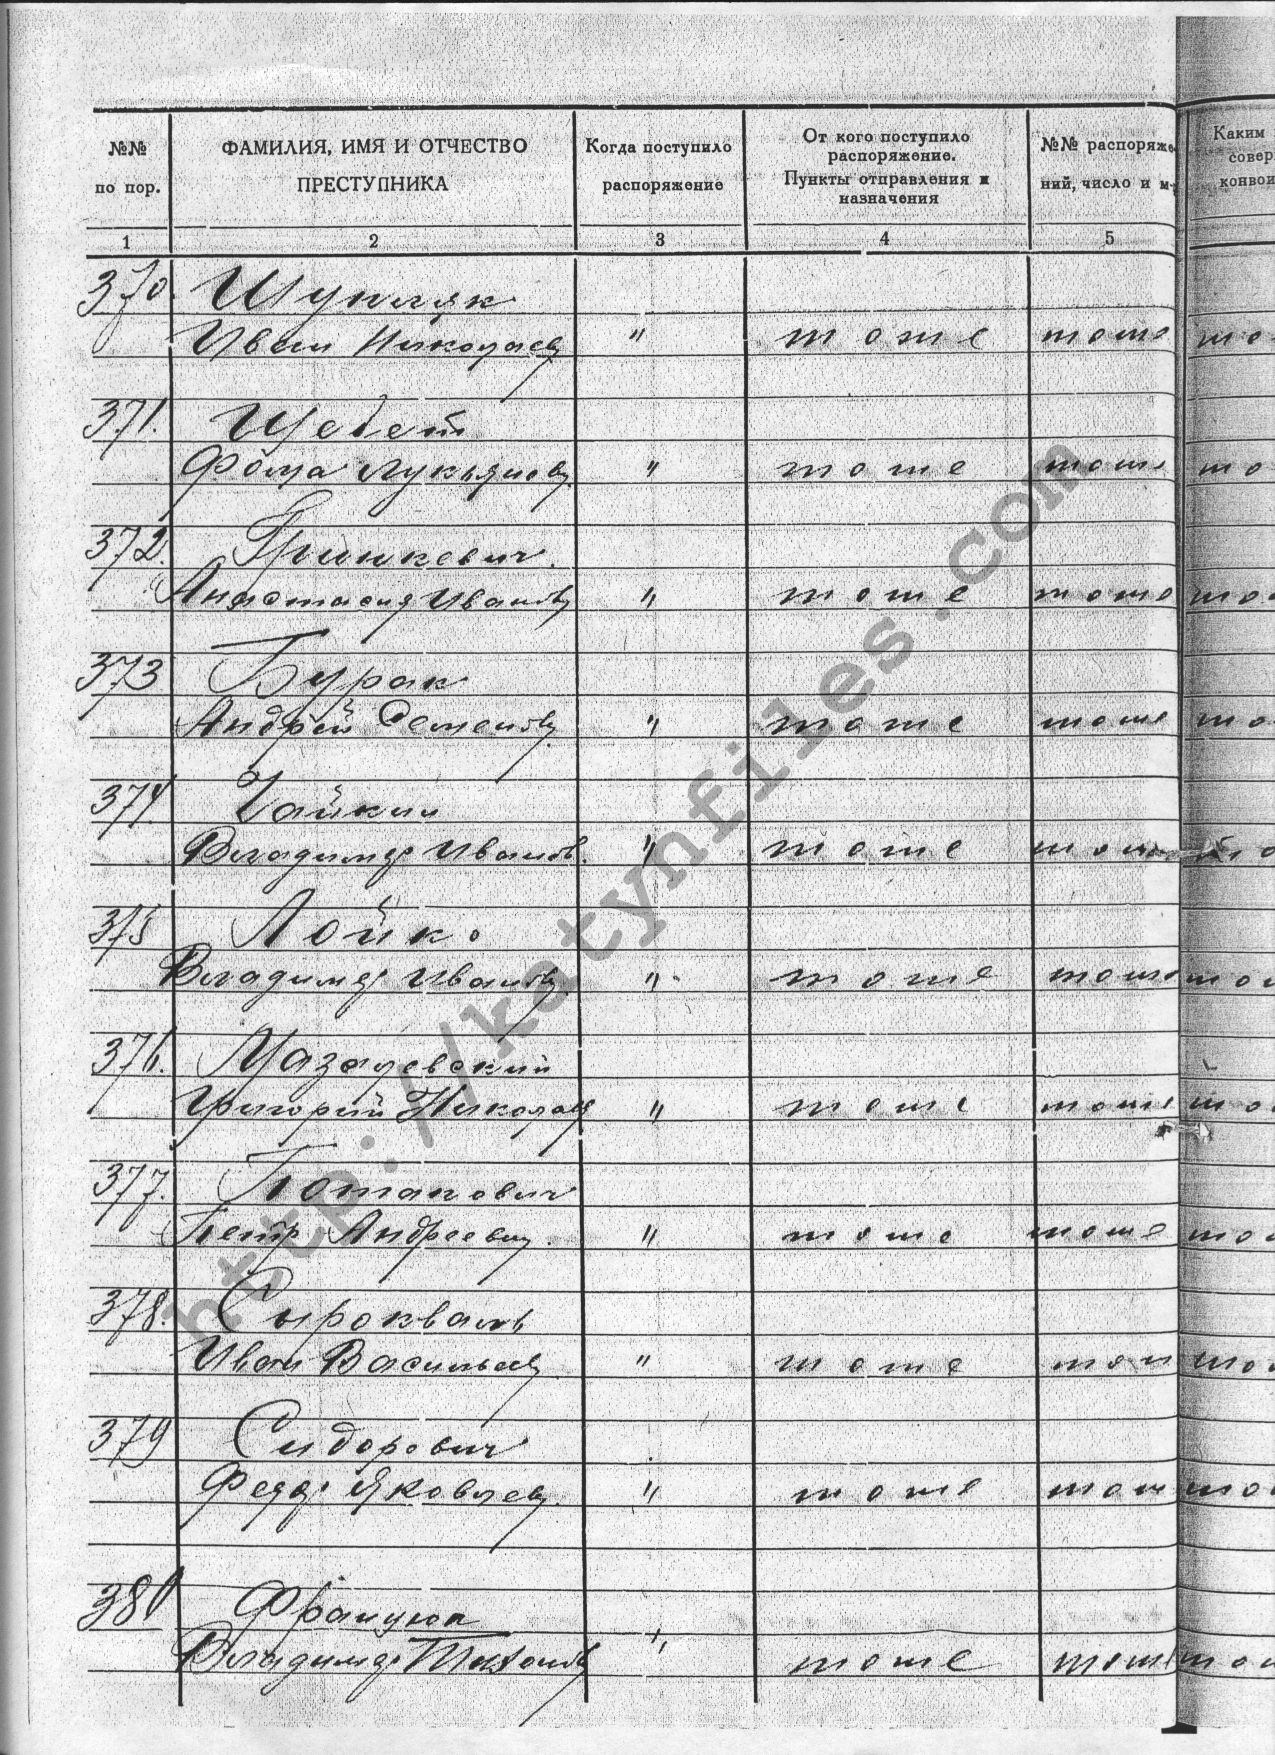 №№ по пор.
ФАМИЛИЯ, ИМЯ И ОТЧЕСТВО ПРЕСТУПНИКА
Когда поступило распоряжение
От кого поступило распоряжение. Пункты отправления и назначения
№№ распоряже-
ний, число и м-
Каким
совер
конвои
1 2 3 4 5
370. Шупляк
Иван Николаев " тоже тоже то
371. Щебет
Фома Лукьянов " тоже тоже то
372. Гринкевич
Анастасия Иванов " тоже тоже то
373 Бурак
Андрей Семенов " тоже тоже то
374. Чайкин
Владимир Иванов. " тоже тоже то
375 Лойко
Владимир Иванов " тоже тоже то
376. Мазалевский
Григорий Николаев " тоже тоже то
377. Потапович
Петр Андреевич. " тоже тоже то
378. Сырокваш
Иван Васильев " тоже то
379 Сидорович
Федор Яковлев " тоже то
380
Владимир " тоже тоже то
http://katynfiles.com